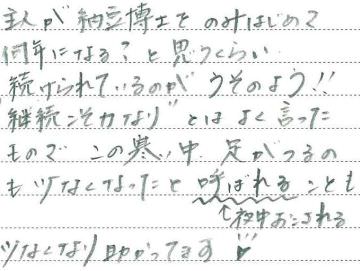 主人が納豆博士をのみはじめて
何年になる?と思うくらい
続けられているのがうそのよう!!
"継続こそ力なり"とはよく言った
もので この寒い中、足がつるの
も少なくなったと呼ばれることも
↑夜中おこされる
少なくなり助かってます♥